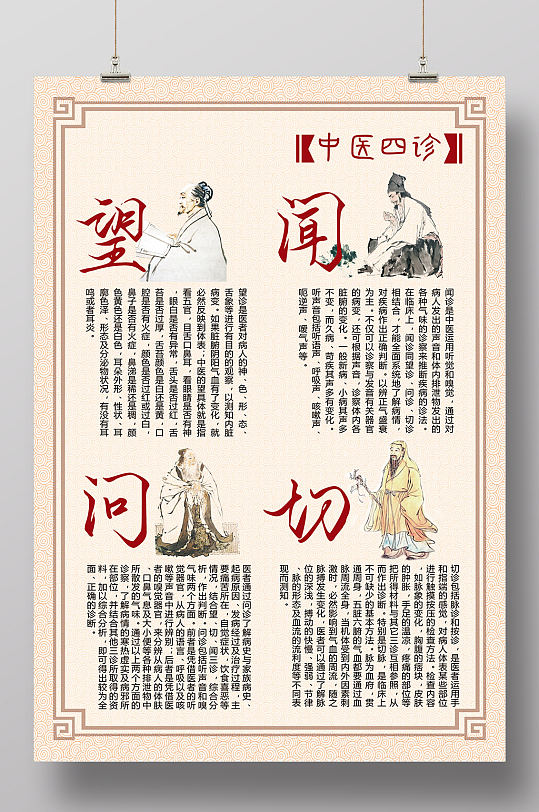 【中医四诊】
望
望诊是医者对病人的神、色、形、态、
舌象等进行有目的的观察，以测知内脏
病变。如果脏腑阴阳气血有了变化，就
必然反映到体表；中医的望具体就是指
看五官，目舌口鼻耳，看眼睛是否有神
，眼白是否有异常，舌头是否过红，舌
苔是否过厚，舌苔颜色是白还是黄，口
腔是否有火症，颜色是否过红或过白，
鼻子是否有火症，鼻涕是稀还是稠，颜
色黄色还是白色，耳朵外形、性状、耳
廓色泽、形态及分泌物状况，有没有耳
鸣或者耳炎。
闻
闻诊是中医运用听觉和嗅觉，通过对
病人发出的声音和体内排泄物发出的
各种气味的诊察来推断疾病的诊法。
在临床上，闻诊同望诊、问诊、切诊
相结合，才能全面系统地了解病情，
对疾病作出正确判断。以辨正气盛衰
为主。不仅可以诊察与发音有关器官
的病变，还可根据声音，诊察体内各
脏腑的变化。一般新病、小病其声多
不变，而久病、苛疾其声多有变化。
听声音包括听语声、呼吸声、咳嗽声、
呃逆声、嗳气声等。
问
医者通过问诊了解病史与家族病史、
起病原因、发病经过及治疗过程，主
要痛苦所在，自觉症状，饮食喜恶等
情况，结合望、切、闻三诊，综合分
析，作出判断。问诊包括听声音和嗅
气味两个方面。前者是凭借医者的听
觉器官，从病人的语言、呼吸以及咳
嗽等声音中进行辨别；后者是凭借医
者的嗅觉器官，来分辨从病人的体肤
、口鼻气息及大小便等各种排泄物中
所散发的气味。通过以上两个方面的
诊察，了解病情的寒热虚实及病邪所
在部位，并结合其他三诊所取得的资
料，加以综合分析，即可得出较为全
面、正确的诊断。
切
切诊包括脉诊和按诊，是医者运用手
和指端的感觉，对病人体表某些部位
进行触摸按压的检查方法。检查内容
，如脉象的变化，胸腹的痞块，皮肤
的肿胀，手足的温凉，疼痛的部位等
把所得材料与其它三诊互相参照，从
而作出诊断。特别是切脉，是临床上
不可缺少的基本方法。脉为血府，贯
通周身，五脏六腑的气血都要通过血
脉周流全身，当机体受到内外因素刺
激时，必然影响到气血的周流，随之
脉搏发生变化，医者可以通过了解脉
位的深浅，搏动的快慢、强弱、节律
、脉的形态及血流的流利度等不同表
现而测知。